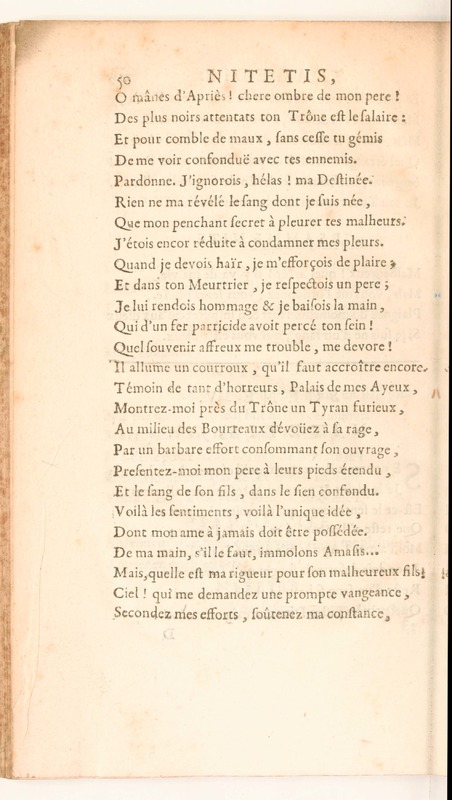 50 NITETIS,
O mânes d'Apriès ! chere ombre de mon pere !
Des plus noirs attentats ton Trône eſt le ſalaire :
Et pour comble de maux , ſans ceſſe tu gémis
De me voir confonduë avec tes ennemis.
Pardonne. J'ignorois , hélas ! ma Deſtinée.
Rien ne ma révélé le ſang dont je ſuis née ,
Que mon penchant ſecret à pleurer tes malheurs.
J'étois encor réduite à condamner mes pleurs.
Quand je devois haïr , je m'efforçois de plaire ;
Et dans ton Meurtrier , je reſpectois un pere ;
Je lui rendois hommage & je baiſois la main ,
Qui d'un fer parricide avoit percé ton ſein !
Quel ſouvenir affreux me trouble , me devore !
Il allume un courroux , qu'il faut accroître encore.
Témoin de tant d'horreurs , Palais de mes Ayeux ,
Montrez-moi près du Trône un Tyran furieux ,
Au milieu des Bourreaux dévoüez à ſa rage ,
Par un barbare effort conſommant ſon ouvrage ,
Preſentez-moi mon pere à leurs pieds étendu ,
Et le ſang de ſon fils , dans le ſien confondu.
Voilà les ſentiments , voilà l'unique idée ,
Dont mon ame à jamais doit être poſſédée.
De ma main, s'il le faut, immolons Amaſis...
Mais, quelle eſt ma rigueur pour ſon malheureux fils !
Ciel ! qui me demandez une prompte vangeance ,
Secondez mes efforts , ſoûtenez ma conſtance ,